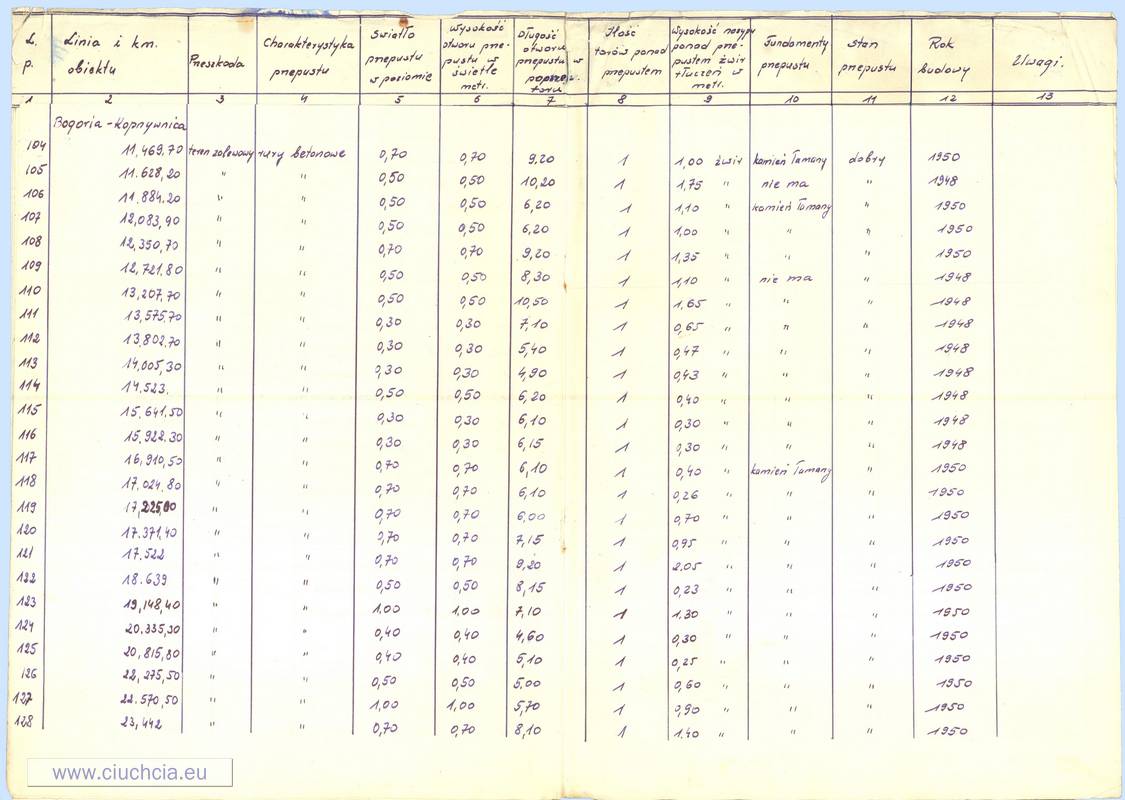 L. p. | Linia i km. obiektu | Przeszkoda | Charakterystyka przepustu | Światło przepustu w poziomie | Wysokość otworu prze- pustu w świetle metr. | Długość otworu przepustu w poprzek toru | Ilość torów ponad przepustem | Wysokość nasypu ponad prze- pustem żwir tłuczeń w metr. | Fundamenty przepustu | Stan przepustu | Rok budowy | Uwagi.
1 | 2 | 3 | 4 | 5 | 6 | 7 | 8 | 9 | 10 | 11 | 12 | 13
Bogoria - Koprzywnica
104 | 11,469.70 | teren zalewowy | rury betonowe | 0,70 | 0,70 | 9,20 | 1 | 1,00 żwir | kamień łamany | dobry | 1950
105 | 11.628,20 | " | " | 0,50 | 0,50 | 10,20 | 1 | 1,75 " | nie ma | " | 1948
106 | 11.884.20 | " | " | 0,50 | 0,50 | 6,20 | 1 | 1,10 " | kamień łamany | " | 1950
107 | 12,083,90 | " | " | 0,50 | 0,50 | 6,20 | 1 | 1,00 " | " | " | 1950
108 | 12,350.70 | " | " | 0,70 | 0,70 | 9,20 | 1 | 1,35 " | " | " | 1950
109 | 12,721.80 | " | " | 0,50 | 0,50 | 8,30 | 1 | 1,10 " | nie ma | " | 1948
110 | 13,207.70 | " | " | 0,50 | 0,50 | 10,50 | 1 | 1,65 " | " | " | 1948
111 | 13,575.70 | " | " | 0,30 | 0,30 | 7,10 | 1 | 0,65 " | " | " | 1948
112 | 13.802.70 | " | " | 0,30 | 0,30 | 5,40 | 1 | 0,47 " | " | " | 1948
113 | 14,005,30 | " | " | 0,30 | 0,30 | 4,90 | 1 | 0,43 " | " | " | 1948
114 | 14.523. | " | " | 0,50 | 0,50 | 6,20 | 1 | 0,40 " | " | " | 1948
115 | 15.641.50 | " | " | 0,30 | 0,30 | 6,10 | 1 | 0,30 " | " | " | 1948
116 | 15,922.30 | " | " | 0,30 | 0,30 | 6,15 | 1 | 0,30 " | " | " | 1948
117 | 16,910,50 | " | " | 0,70 | 0,70 | 6,10 | 1 | 0,40 " | kamień łamany | " | 1950
118 | 17.024.80 | " | " | 0,70 | 0,70 | 6,10 | 1 | 0,26 " | " | " | 1950
119 | 17,225,00 | " | " | 0,70 | 0,70 | 6,00 | 1 | 0,70 " | " | " | 1950
120 | 17.371,40 | " | " | 0,70 | 0,70 | 7,15 | 1 | 0,95 " | " | " | 1950
121 | 17.522 | " | " | 0,70 | 0,70 | 9,20 | 1 | 2.05 " | " | " | 1950
122 | 18.639 | " | " | 0,50 | 0,50 | 8,15 | 1 | 0,23 " | " | " | 1950
123 | 19,148,40 | " | " | 1,00 | 1,00 | 7,10 | 1 | 1.30 " | " | " | 1950
124 | 20.335,30 | " | " | 0,40 | 0,40 | 4,60 | 1 | 0,30 " | " | " | 1950
125 | 20,815,80 | " | " | 0,40 | 0,40 | 5,10 | 1 | 0,25 " | " | " | 1950
126 | 22,275,50 | " | " | 0,50 | 0,50 | 5.00 | 1 | 0,60 " | " | " | 1950
127 | 22.570,50 | " | " | 1,00 | 1,00 | 5,70 | 1 | 0,90 " | " | " | 1950
128 | 23,442 | " | " | 0,70 | 0,70 | 8,10 | 1 | 1.40 " | " | " | 1950
www.ciuchcia.eu